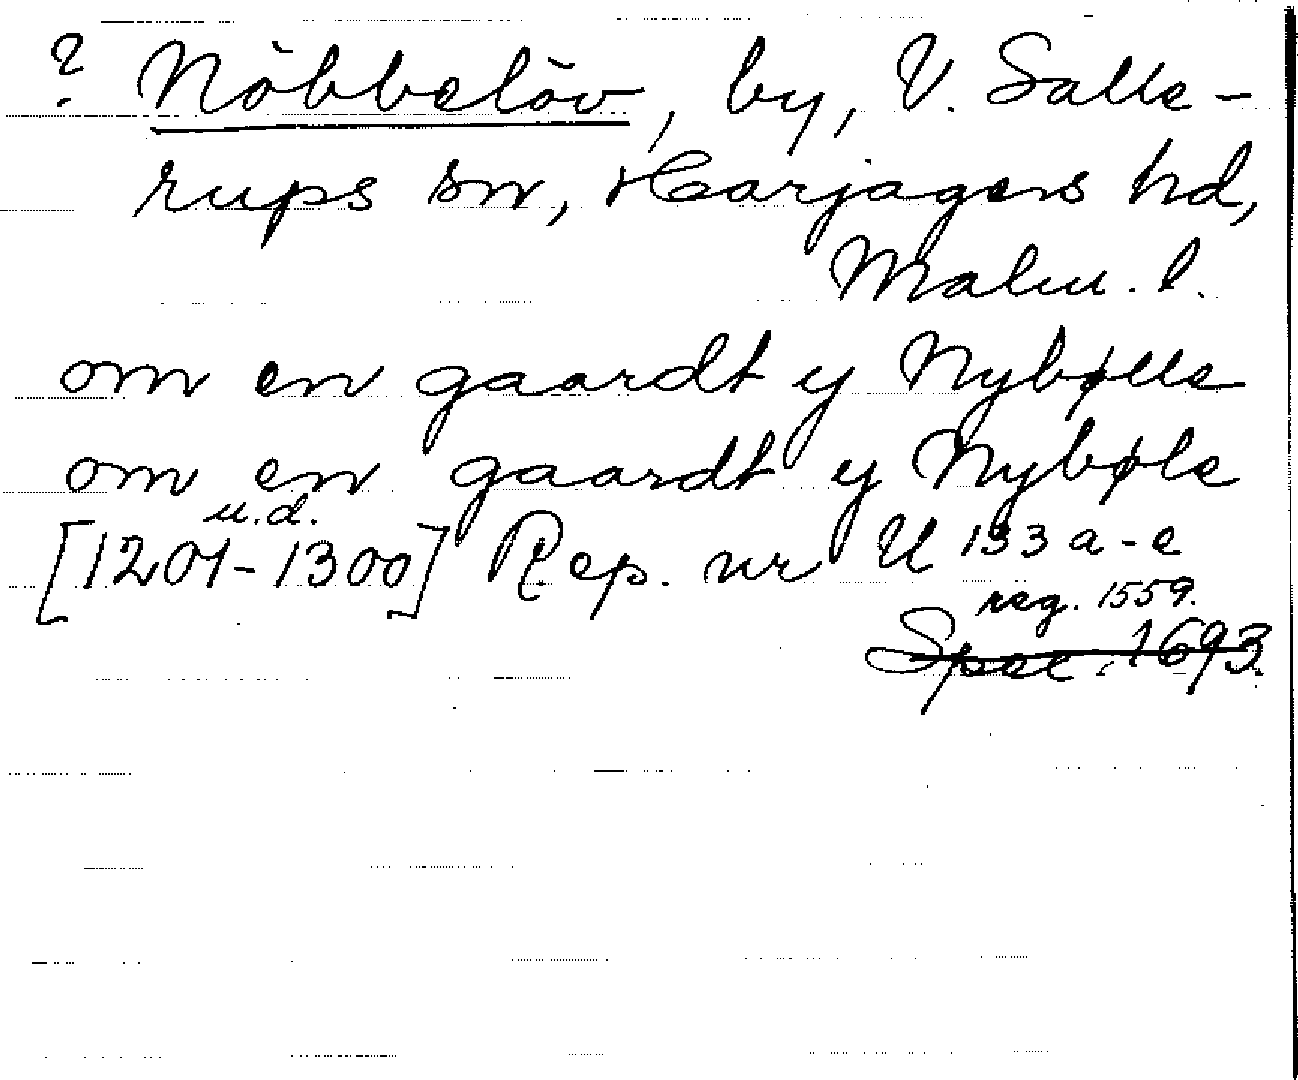 ? Nöbbelöv, by, V. Salle-
rups sn, Harjagers hd,
Malm. l.
om en gaardt y Nybølle
om en gaardt y Nybøle
u.d.
[1201-1300] Rep. nr U 133 a-e
reg. 1559.
Spec. 1693.